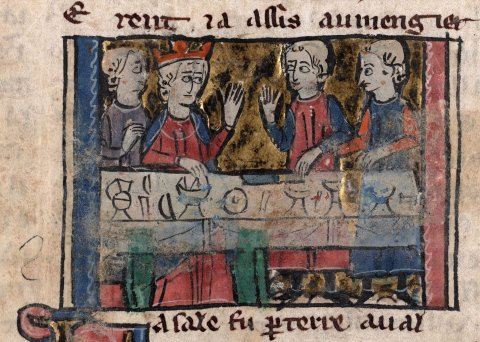 E rent ia assis aumengier
a sale fu ꝑ terre aual